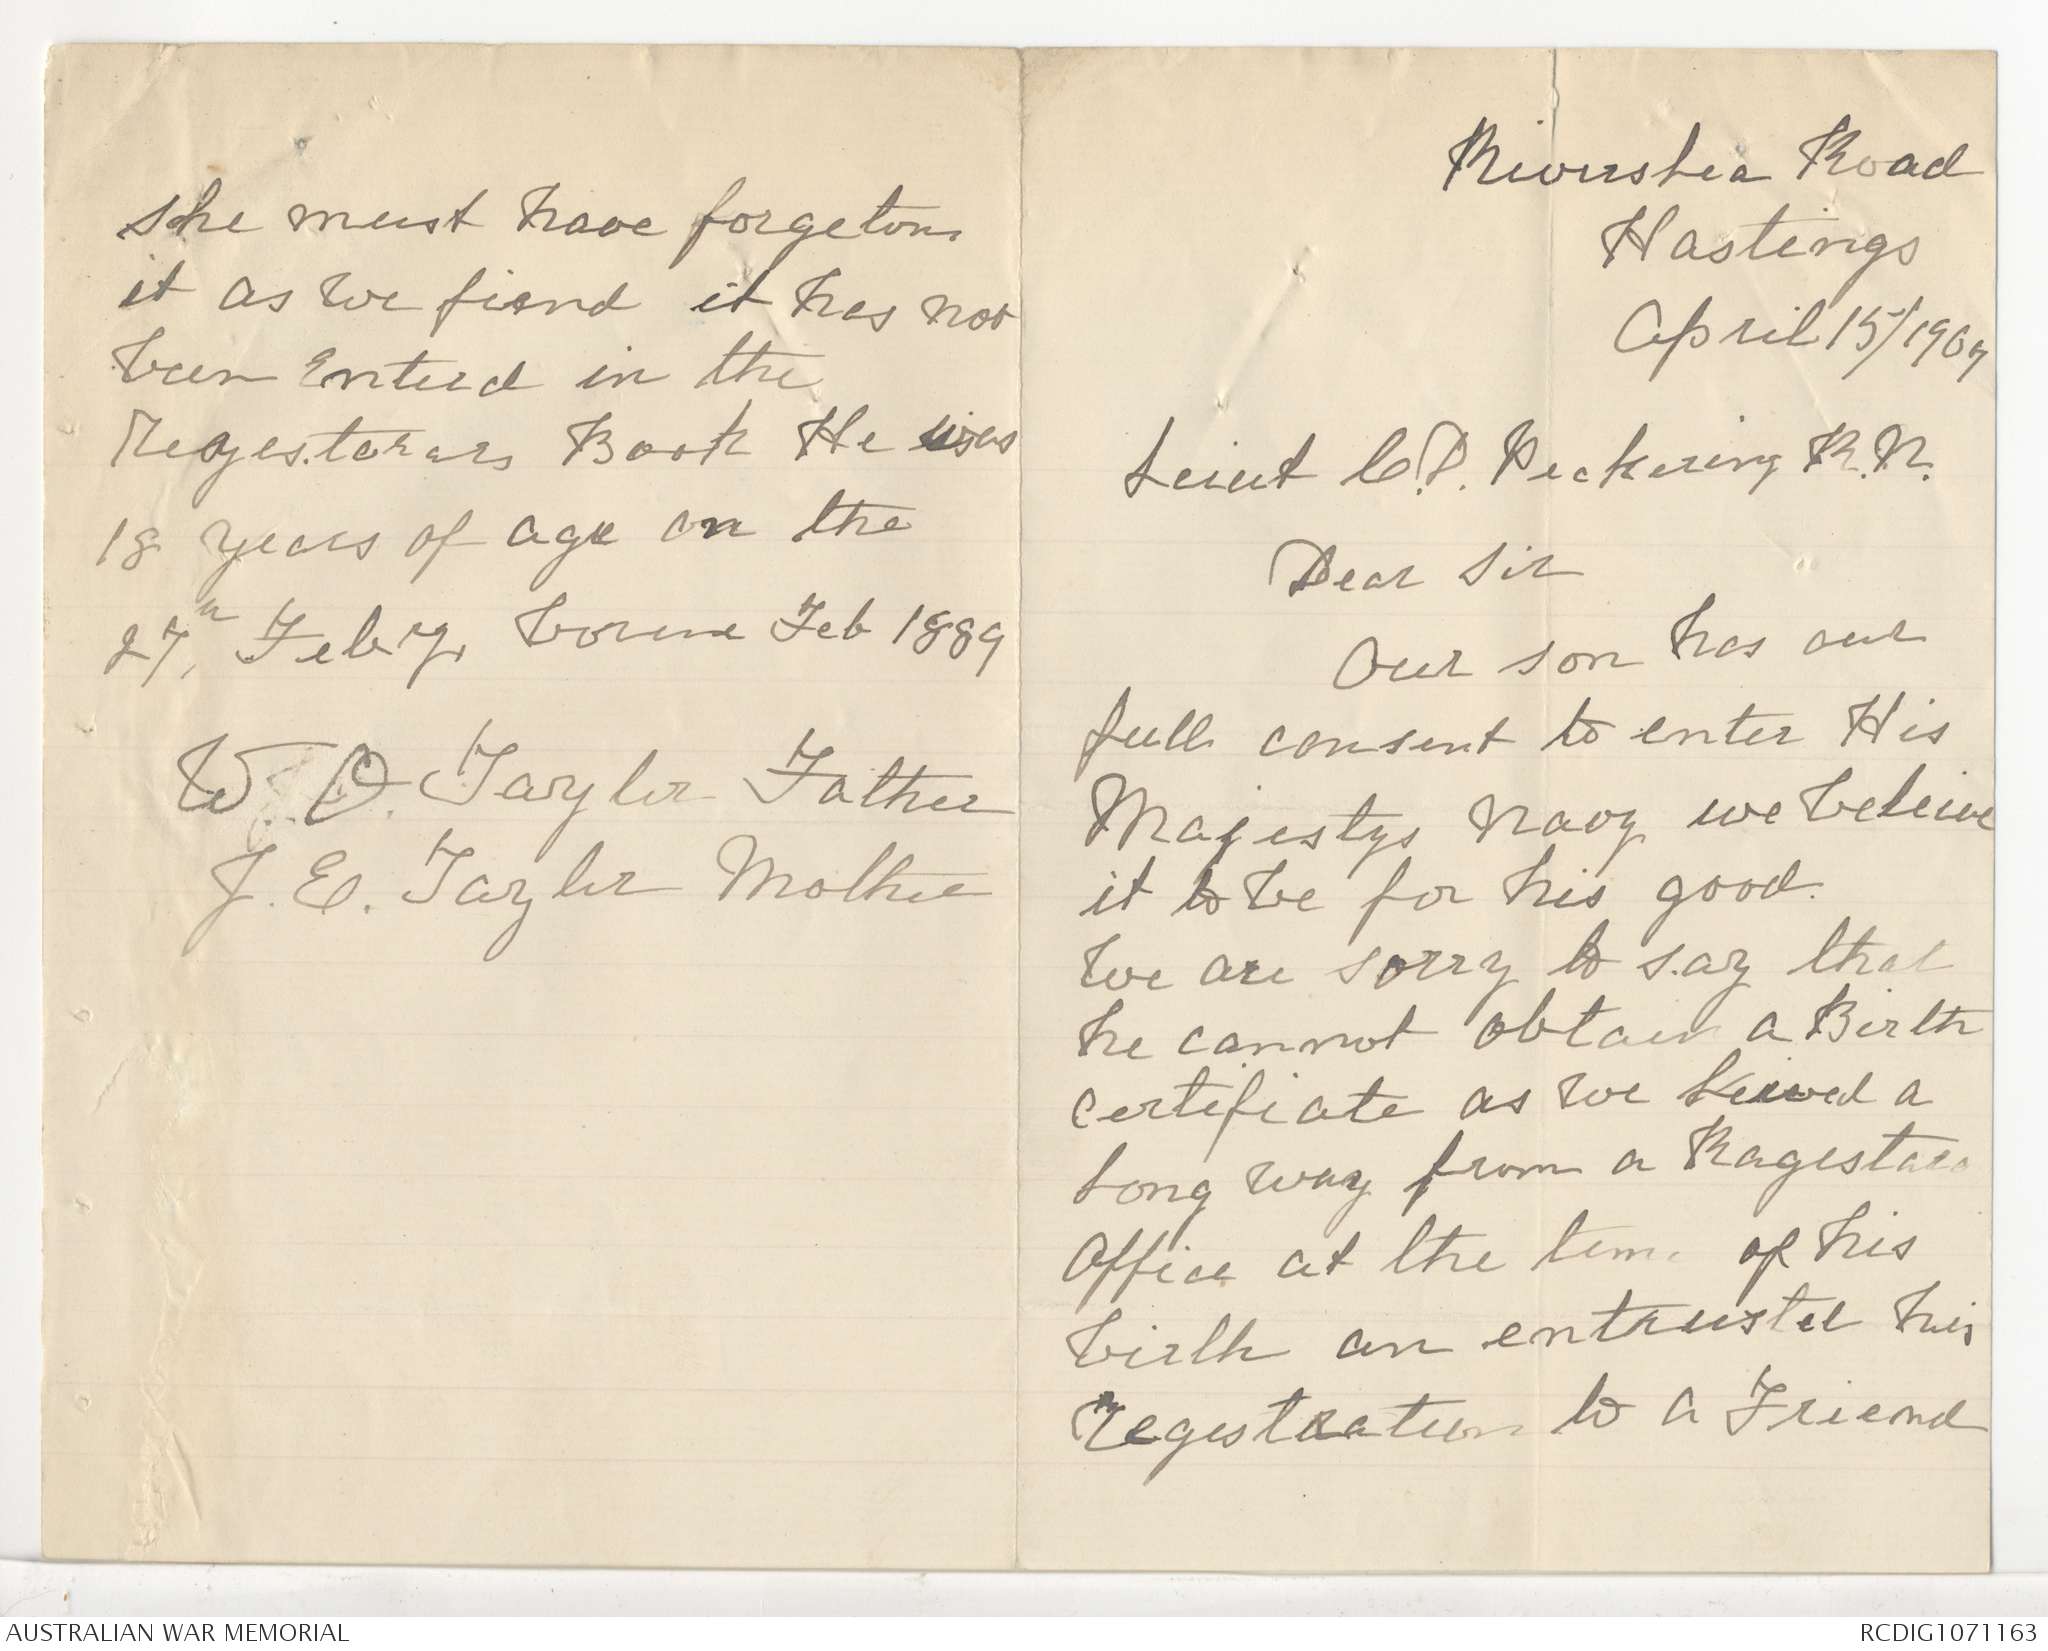 Riverslea Road
Hastings
April 15/1907
Leiut C.P. Peckering R.N.
Dear Sir
Our son has our
full consent to enter His
Majestys Navy we beleive
it to be for his good.
we are sorry to say that
he cannot obtain a Birth
certifiate as we leived a
long way from a
Office at the time of his
birth an entrusted his
regestration to a Friend
she must have forgeton
it as we fiend it has not
been Enterd in the
Regesterars Book He was
18 years of age on the
27th Feby, borne Feb 1889
W. O. Tayler Father
J. E. Tayler Mother
AUSTRALIAN WAR MEMORIAL
RCDIG1071163